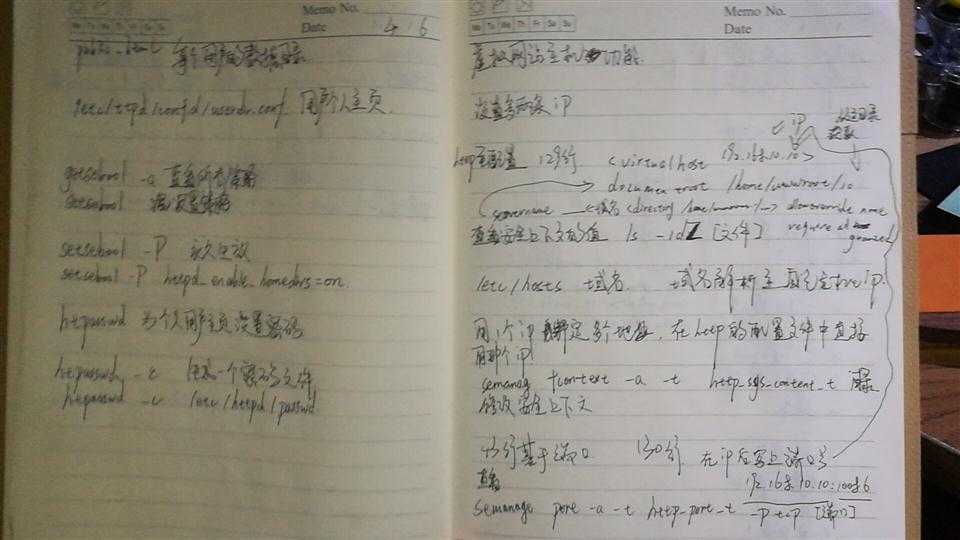 Memo No.
Mo Tu We Th Fr Sa Su
Date 4 6
public_html 每个用户的数据目录
/etc/httpd/conf.d/userdir.conf 用户个人主页
getsebool -a 查看所有策略
setsebool
setsebool -P 永久生效
setsebool -P httpd_enable_homedirs=on
htpasswd 为个人用户主页设置密码
htpasswd -c 生成一个密码文件
htpasswd -c /etc/httpd/passwd
Memo No.
Mo Tu We Th Fr Sa Su
Date
虚拟网站主机功能
ip
获取
http主配置 129行 <virtualhost 192.168.10.10>
documentroot /home/wwwroot/10
servername 域名 <directory /home/wwwroot/ > allowoverride none
require all granted
查看安全上下文的值 ls -ldZ [文件]
/etc/hosts 域名 域名解析至自己主机ip
用1个ip绑定多个地址,在http的配置文件中直接
用那个ip
semanage fcontext -a -t http_sys_content_t 目录
修改安全上下文
43行基于端口 130行 在ip后写上端口号
192.168.10.10:10086
查看
semanage port -a -t http-port_t -p tcp [端口]